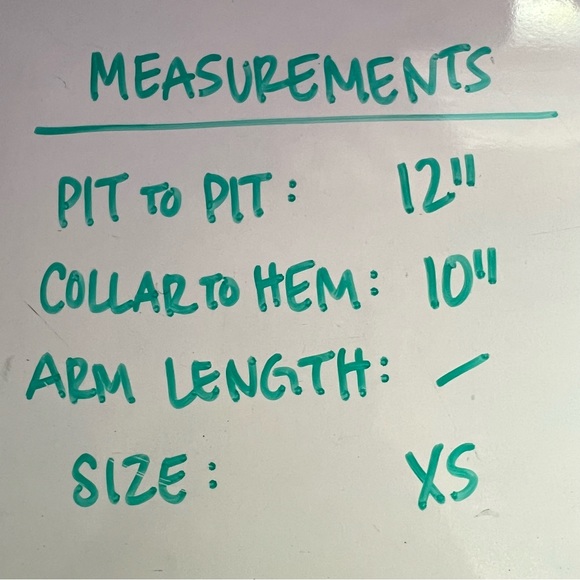 MEASUREMENTS
PIT TO PIT: 12"
COLLAR TO HEM: 10"
ARM LENGTH: –
SIZE: XS